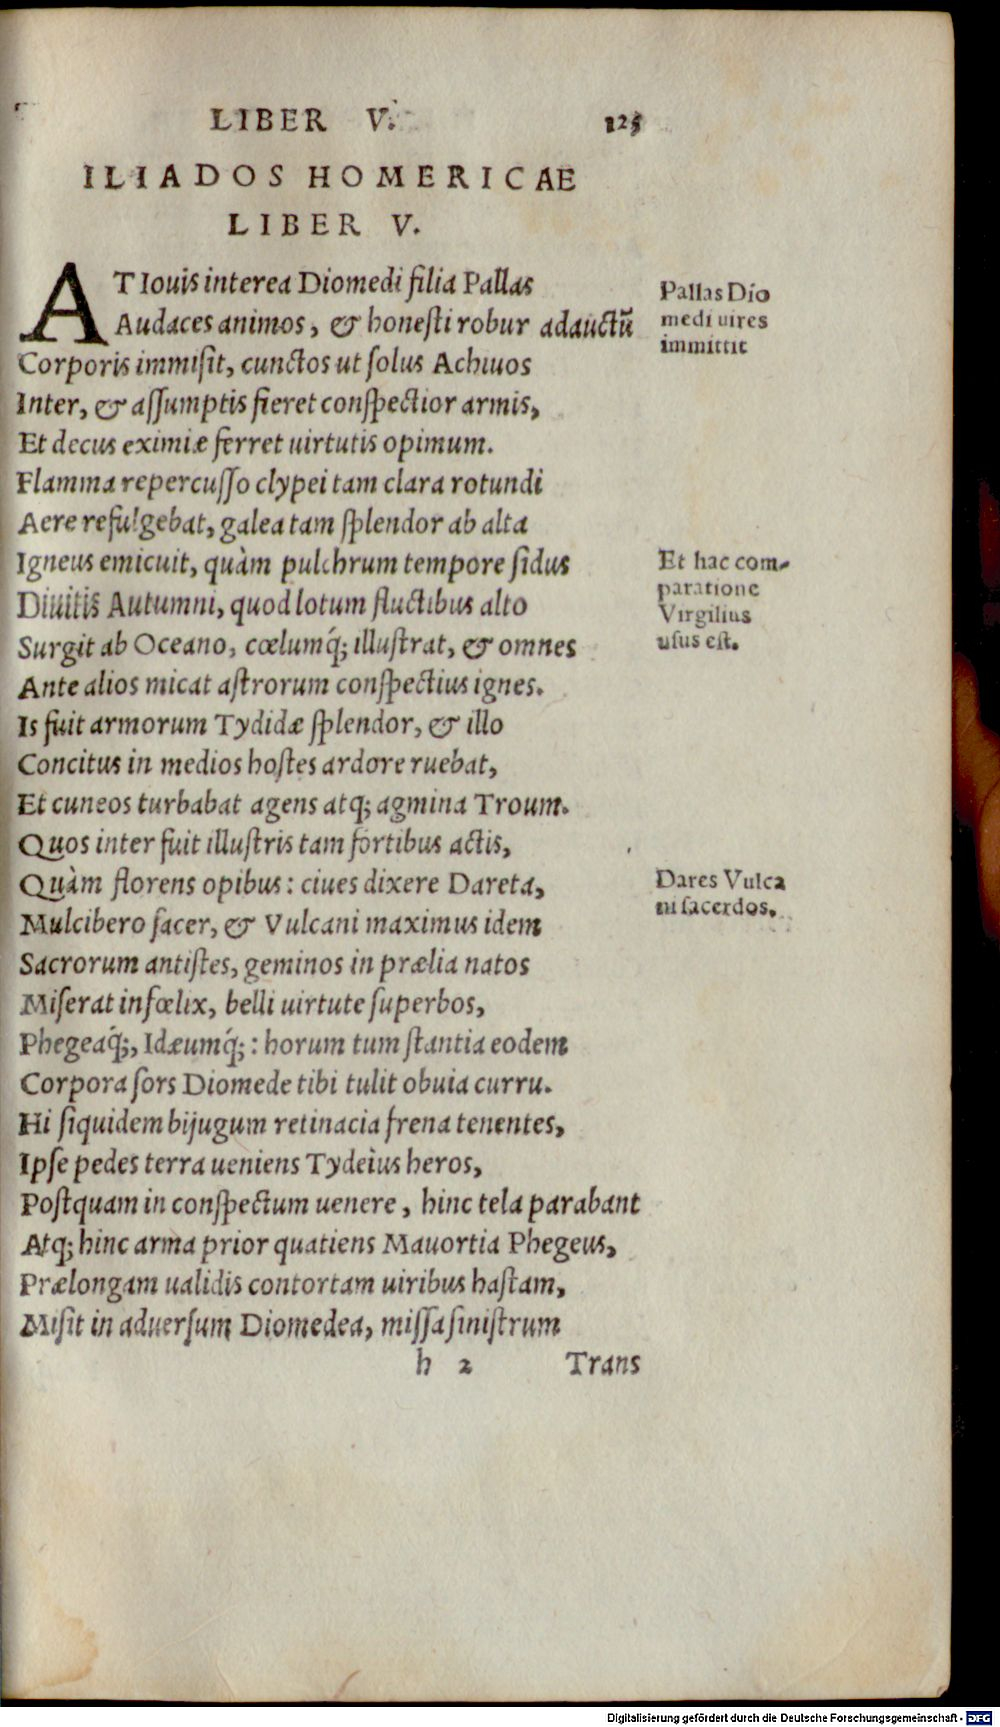 LIBER V. 125
ILIADOS HOMERICAE
LIBER V.
AT Iouis interea Diomedi filia Pallas
Audaces animos, & honesti robur adauctũ
Corporis immisit, cunctos ut solus Achiuos
Inter, & assumptis fieret conspectior armis,
Et decus eximiæ ferret uirtutis opimum.
Flamma repercusso clypei tam clara rotundi
Aere refulgebat, galea tam splendor ab alta
Igneus emicuit, quàm pulchrum tempore sidus
Diuitis Autumni, quod lotum fluctibus alto
Surgit ab Oceano, cœlumq́; illustrat, & omnes
Ante alios micat astrorum conspectius ignes.
Is fuit armorum Tydidæ splendor, & illo
Concitus in medios hostes ardore ruebat,
Et cuneos turbabat agens atq; agmina Troum.
Quos inter fuit illustris tam fortibus actis,
Quàm florens opibus: ciues dixere Dareta,
Mulcibero sacer, & Vulcani maximus idem
Sacrorum antistes, geminos in prælia natos
Miserat infœlix, belli uirtute superbos,
Phegeaq́;, Idæumq́;: horum tum stantia eodem
Corpora sors Diomede tibi tulit obuia curru.
Hi siquidem bijugum retinacia frena tenentes,
Ipse pedes terra ueniens Tydeìus heros,
Postquam in conspectum uenere, hinc tela parabant
Atq; hinc arma prior quatiens Mauortia Phegeus,
Prælongam ualidis contortam uiribus hastam,
Misit in aduersum Diomedea, missa sinistrum
h 2 Trans
Pallas Dio
medi uires
immittit
Et hac com-
paratione
Virgilius
usus est.
Dares Vulca
ni sacerdos.
Digitalisierung gefördert durch die Deutsche Forschungsgemeinschaft - DFG